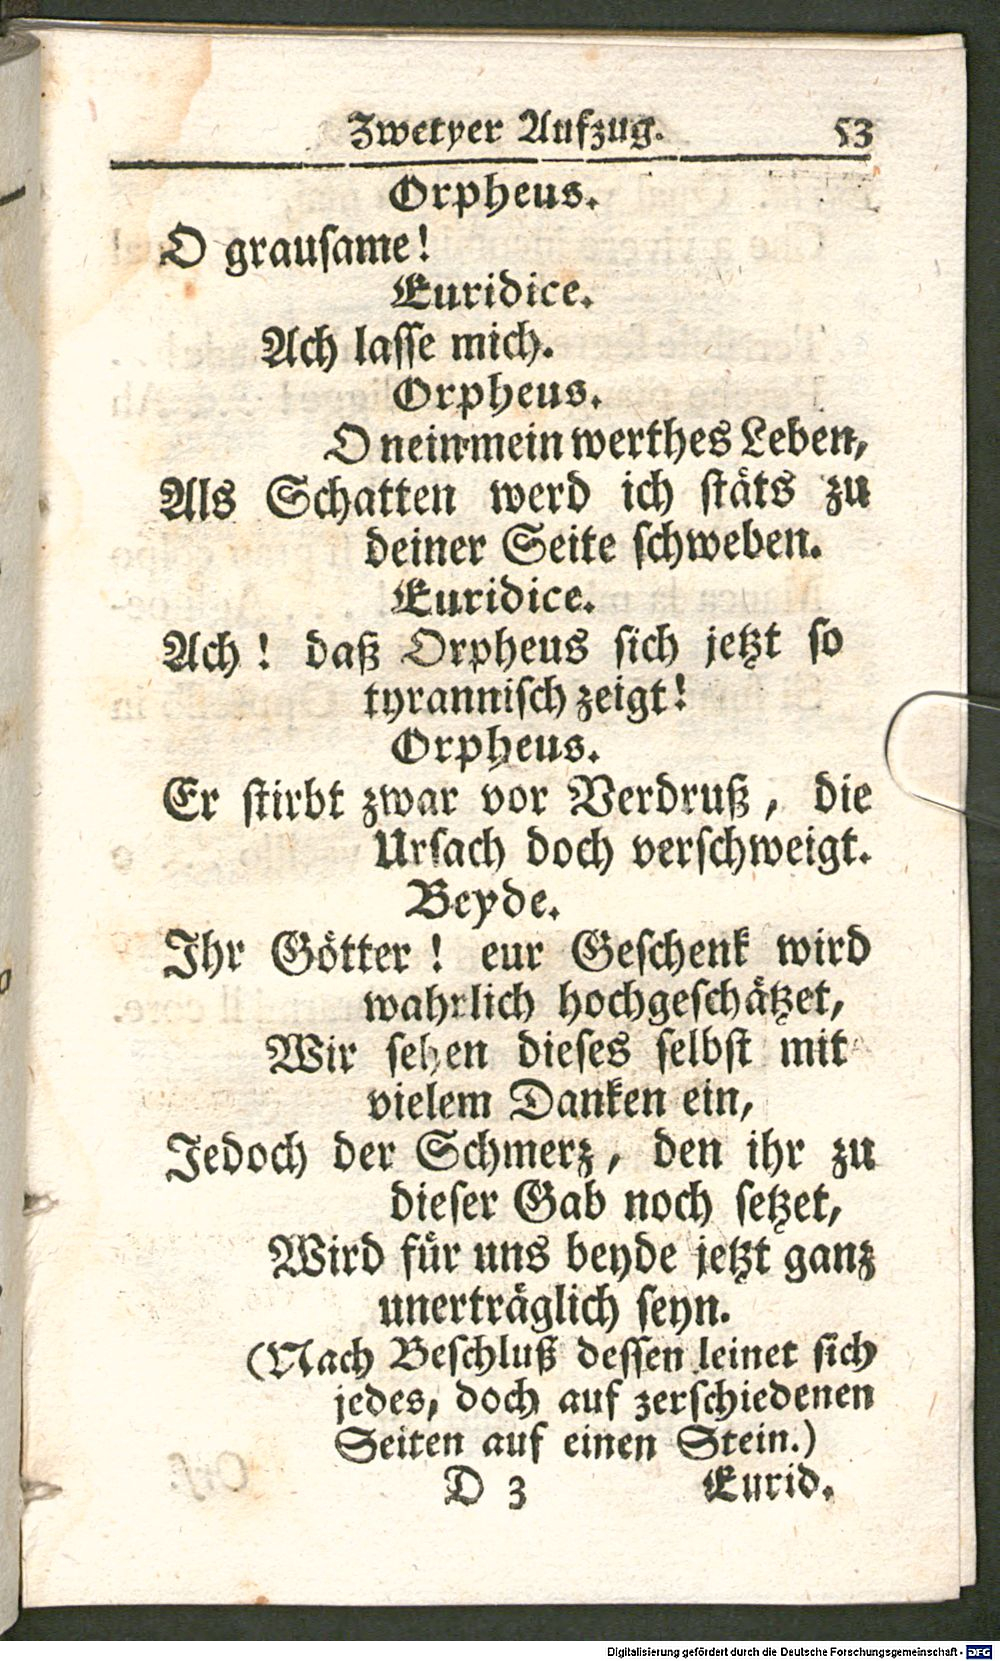 Zwetyer Aufzug. 53
Orpheus.
O grauſame!
Euridice.
Ach laſſe mich.
Orpheus.
O nein mein werthes Leben,
Als Schatten werd ich ſtäts zu
deiner Seite ſchweben.
Euridice.
Ach! daß Orpheus ſich jetzt ſo
tyranniſch zeigt!
Orpheus.
Er ſtirbt zwar vor Verdruß, die
Urſach doch verſchweigt.
Beyde.
Ihr Götter! eur Geſchenk wird
wahrlich hochgeſchätzet,
Wir ſehen dieſes ſelbſt mit
vielem Danken ein,
Jedoch der Schmerz, den ihr zu
dieſer Gab noch ſetzet,
Wird für uns beyde jetzt ganz
unerträglich ſeyn.
(Nach Beſchluß deſſen leinet ſich
jedes, doch auf zerſchiedenen
Seiten auf einen Stein.)
D 3 Eurid.
Digitalisierung gefördert durch die Deutsche Forschungsgemeinschaft - DFG